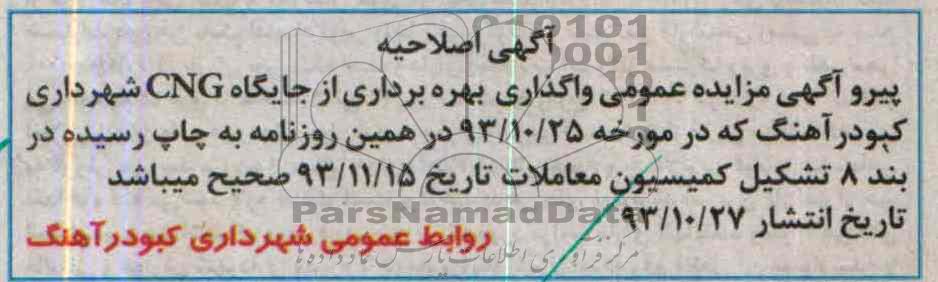 آگهی اصلاحیه
پیرو آگهی مزایده عمومی واگذاری بهره برداری از جایگاه CNG شهرداری
کبودرآهنگ که در مورخه ۹۳/۱۰/۲۵ در همین روزنامه به چاپ رسیده در
بند ۸ تشکیل کمیسیون معاملات تاریخ ۹۳/۱۱/۱۵ صحیح میباشد
تاریخ انتشار ۹۳/۱۰/۲۷
روابط عمومی شهرداری کبودرآهنگ
ParsNamadData
مرکز فرآوری اطلاعات پارس نماد داده ها